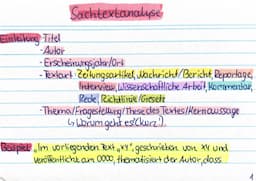 Sachtextanalyse
Einleitung: Titel
- Autor
- Erscheinungsjahr/Ort
- Textart: Zeitungsartikel, Nachricht/Bericht, Reportage,
Interview, Wissenschaftliche Arbeit, Kommentar,
Rede, Richtlinie/Gesetz
- Thema/Fragestellung/These des Textes/Kernaussage
↳ Worum geht es? (kurz!).
Beispiel: „Im vorliegenden Text „xy", geschrieben von xy und
veröffentlicht am 0000, thematisiert der Autor, dass
1